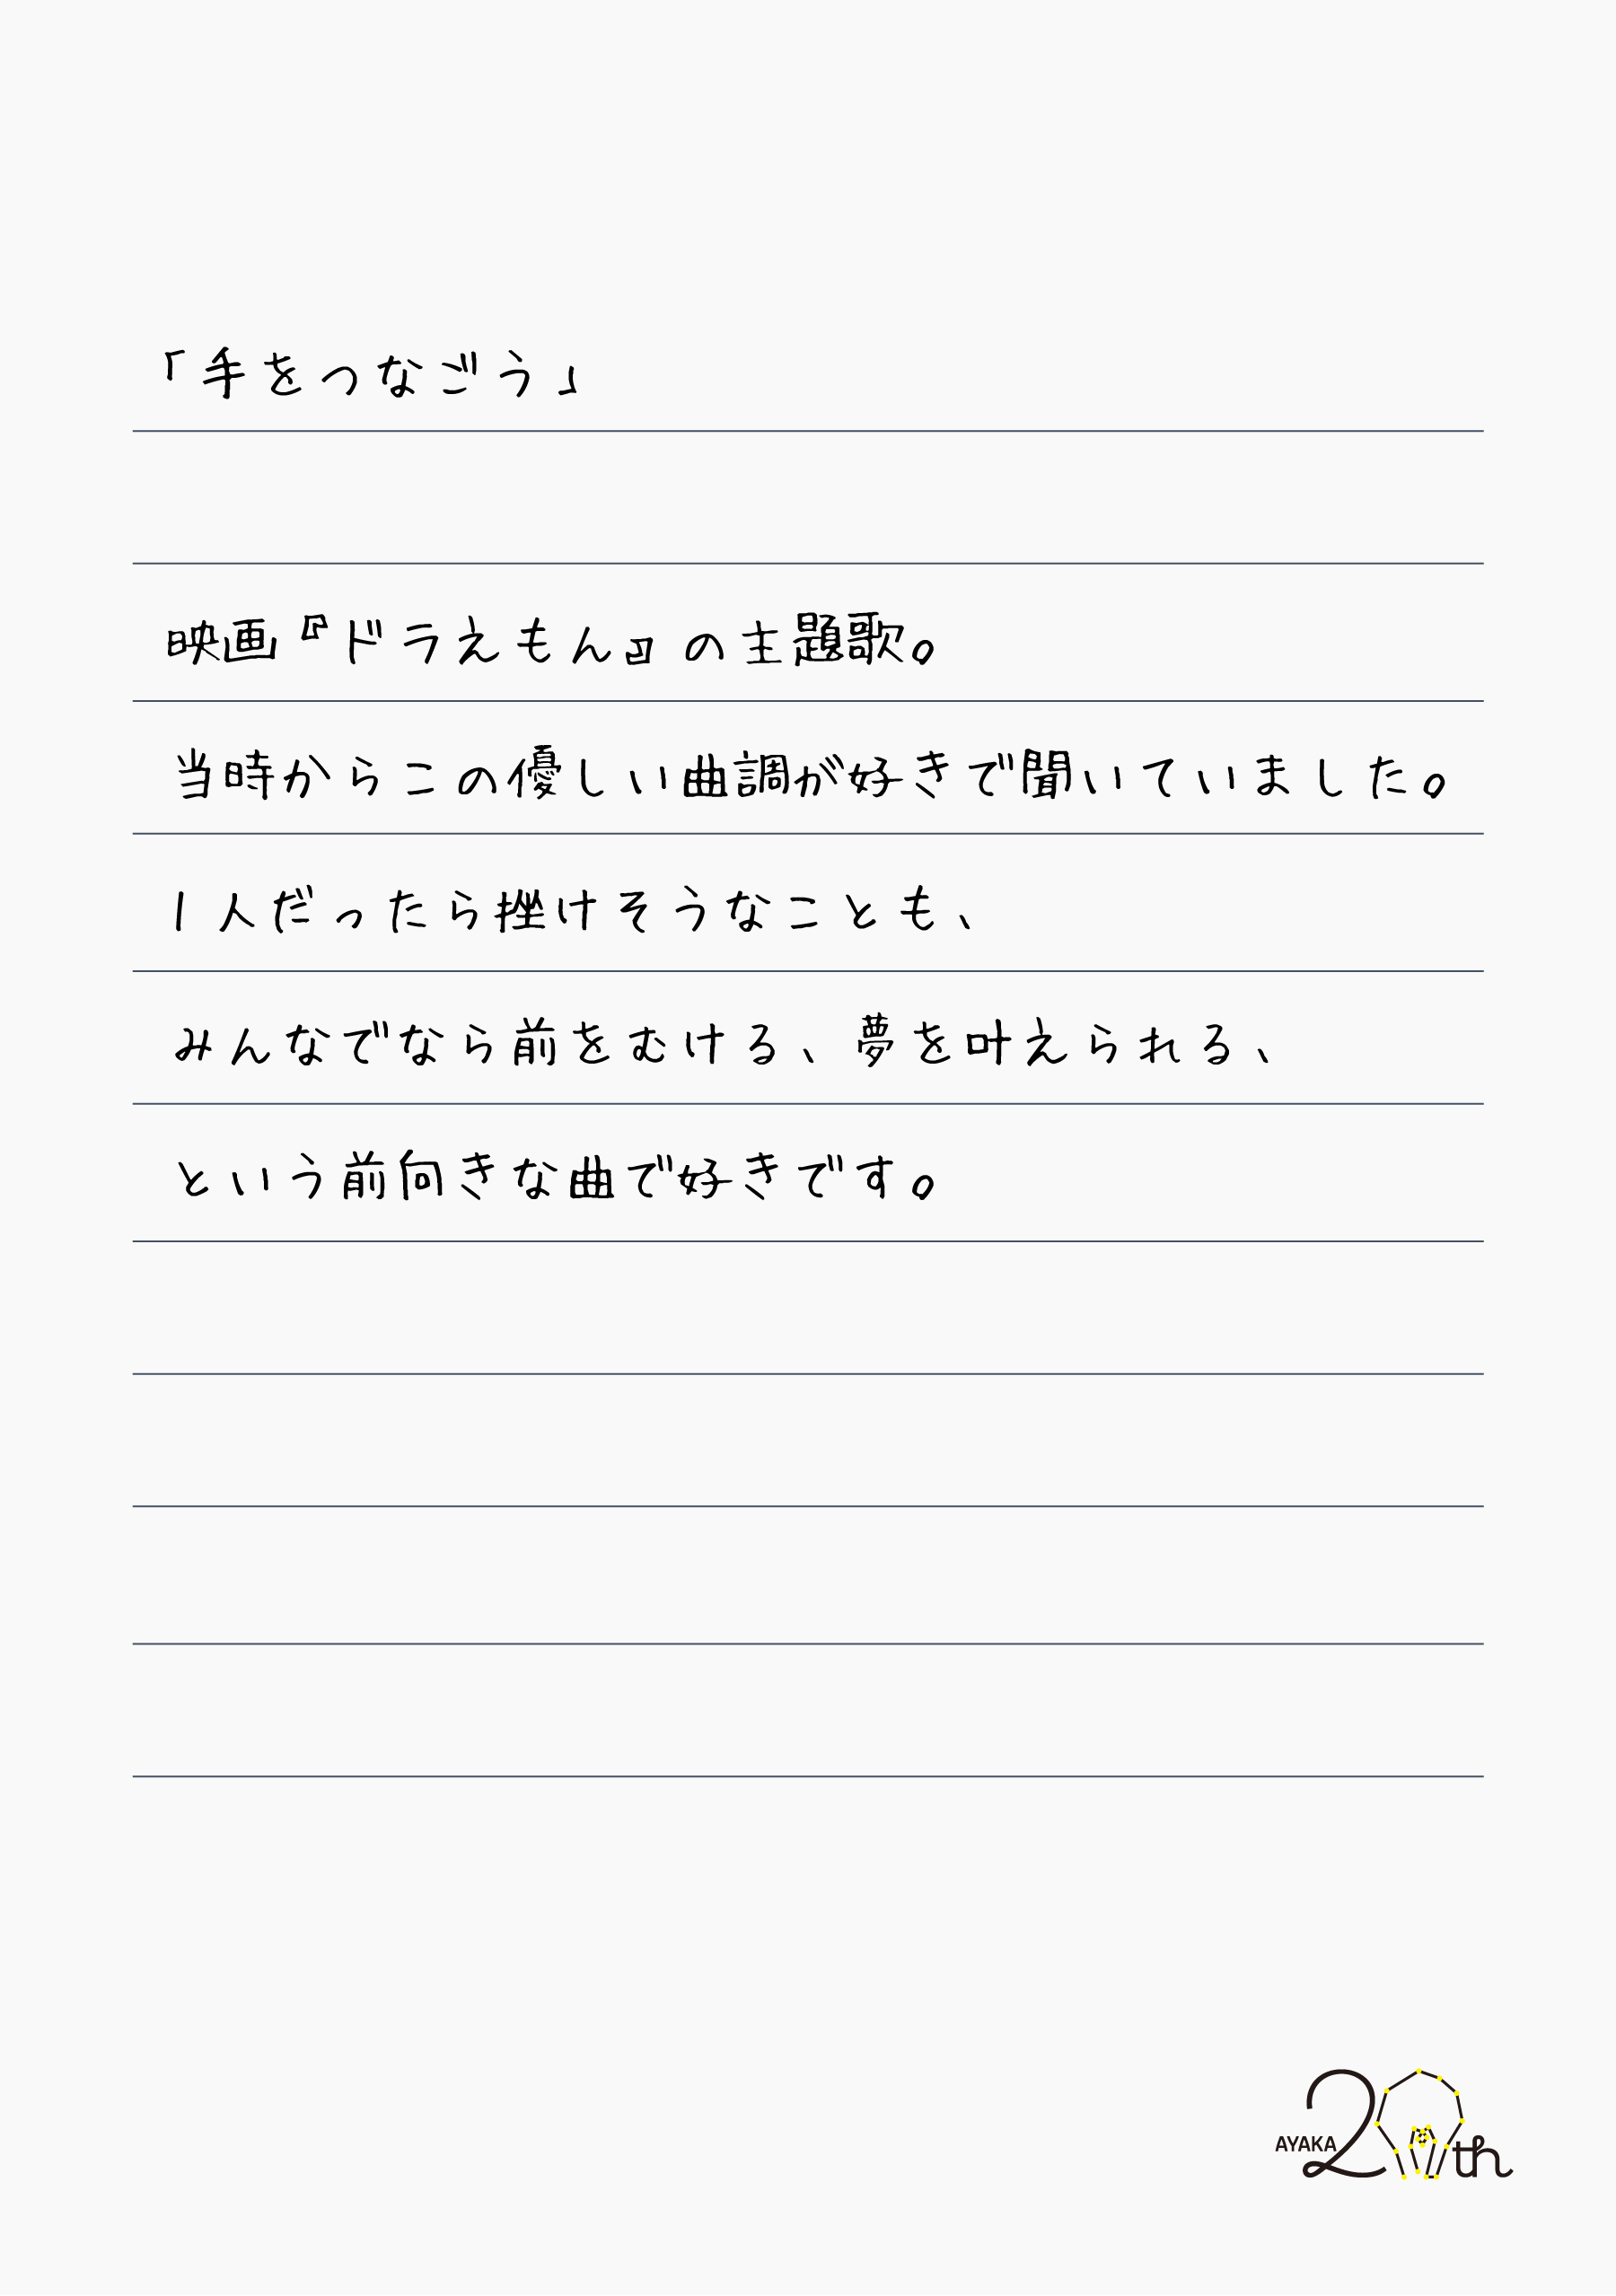 「手をつなごう」
映画『ドラえもん』の主題歌。
当時からこの優しい曲調が好きで聞いていました。
1人だったら挫けそうなことも、
みんなでなら前をむける、夢を叶えられる、
という前向きな曲で好きです。
AYAKA 20th